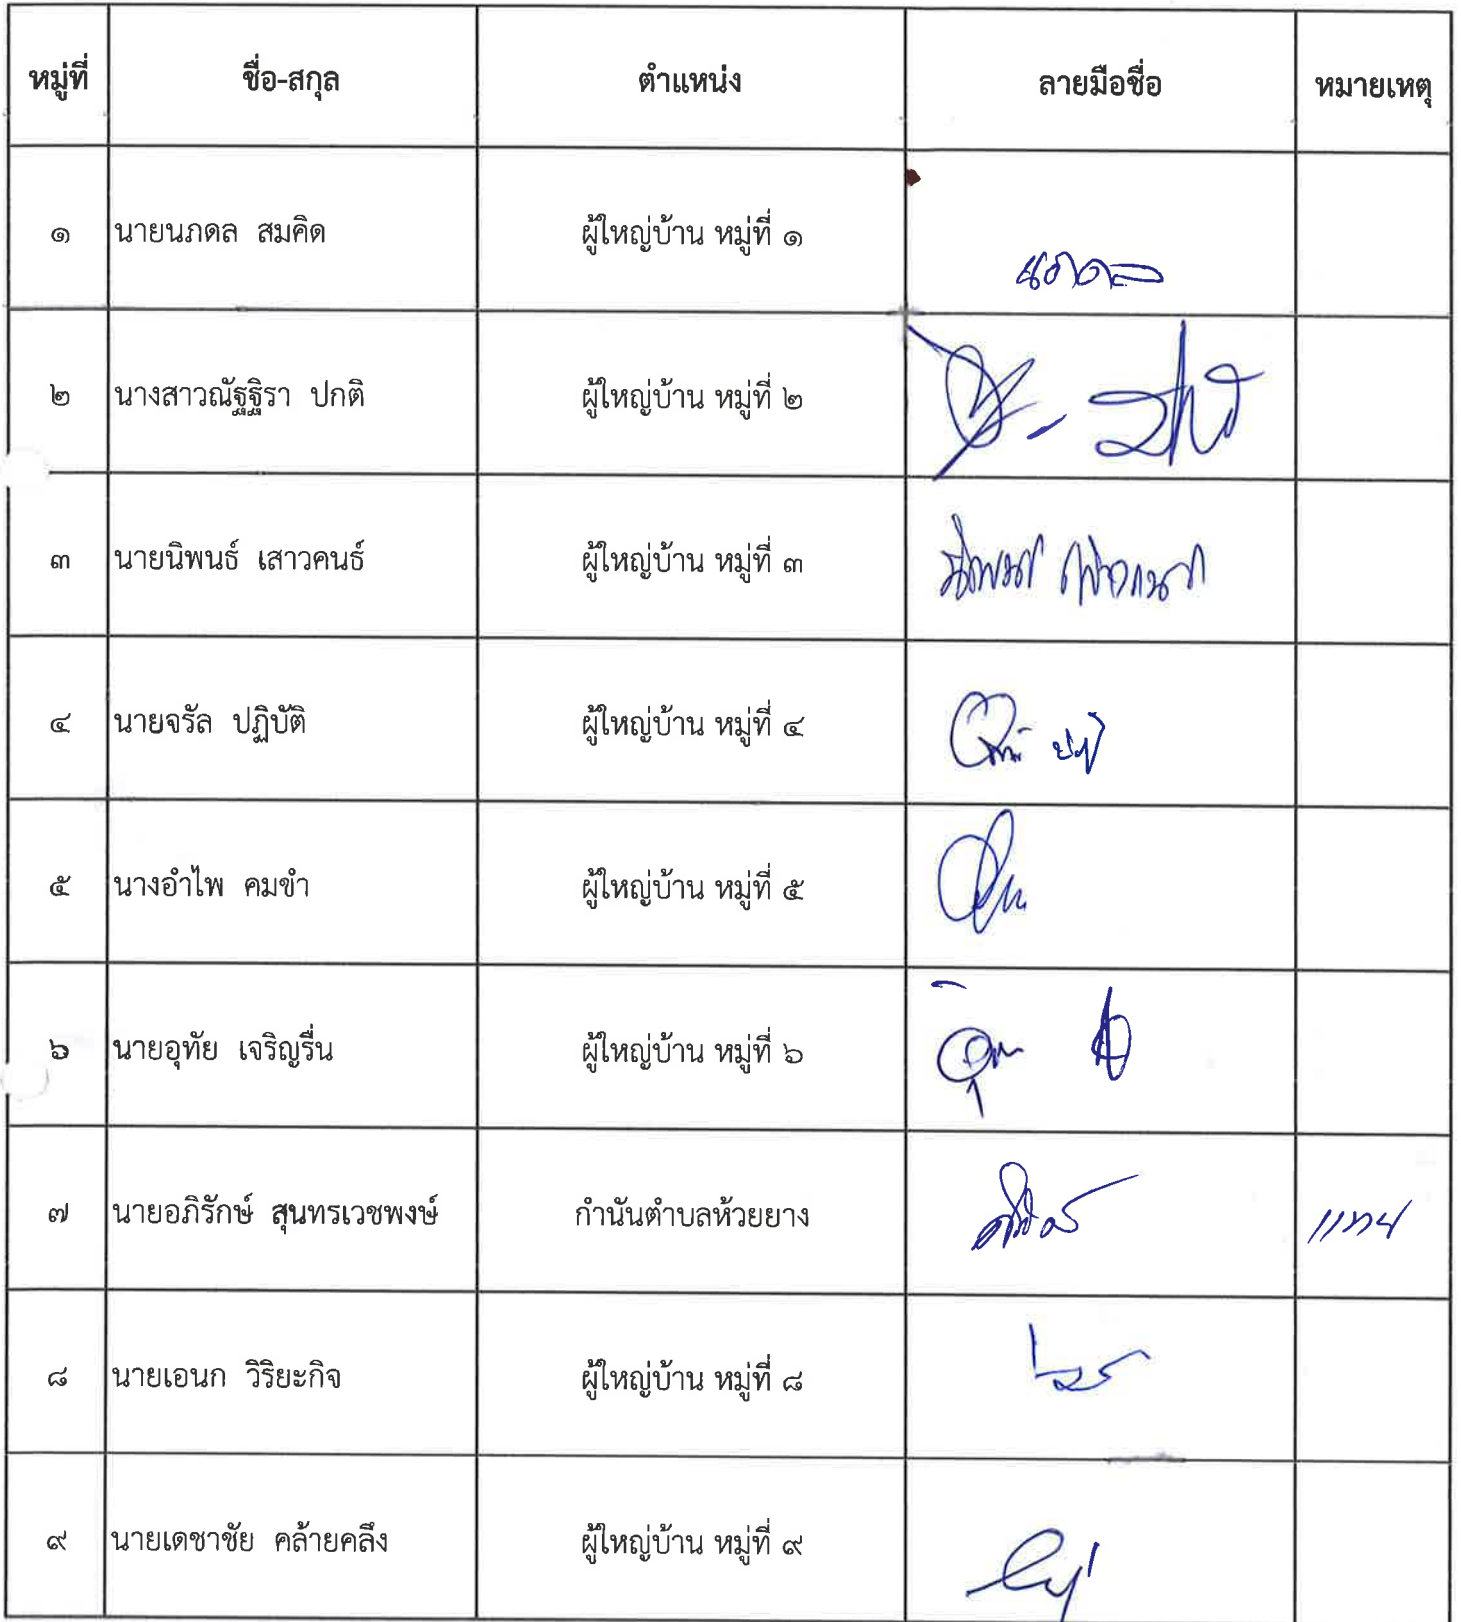 หมู่ที่ ชื่อ-สกุล ตำแหน่ง ลายมือชื่อ หมายเหตุ
๑ นายนภดล สมคิด ผู้ใหญ่บ้าน หมู่ที่ ๑ นภดล
๒ นางสาวณัฐฐิรา ปกติ ผู้ใหญ่บ้าน หมู่ที่ ๒
๓ นายนิพนธ์ เสาวคนธ์ ผู้ใหญ่บ้าน หมู่ที่ ๓ นิพนธ์ เสาวคนธ์
๔ นายจรัล ปฏิบัติ ผู้ใหญ่บ้าน หมู่ที่ ๔
๕ นางอำไพ คมขำ ผู้ใหญ่บ้าน หมู่ที่ ๕
๖ นายอุทัย เจริญรื่น ผู้ใหญ่บ้าน หมู่ที่ ๖
๗ นายอภิรักษ์ สุนทรเวชพงษ์ กำนันตำบลห้วยยาง แทน
๘ นายเอนก วิริยะกิจ ผู้ใหญ่บ้าน หมู่ที่ ๘
๙ นายเดชาชัย คล้ายคลึง ผู้ใหญ่บ้าน หมู่ที่ ๙